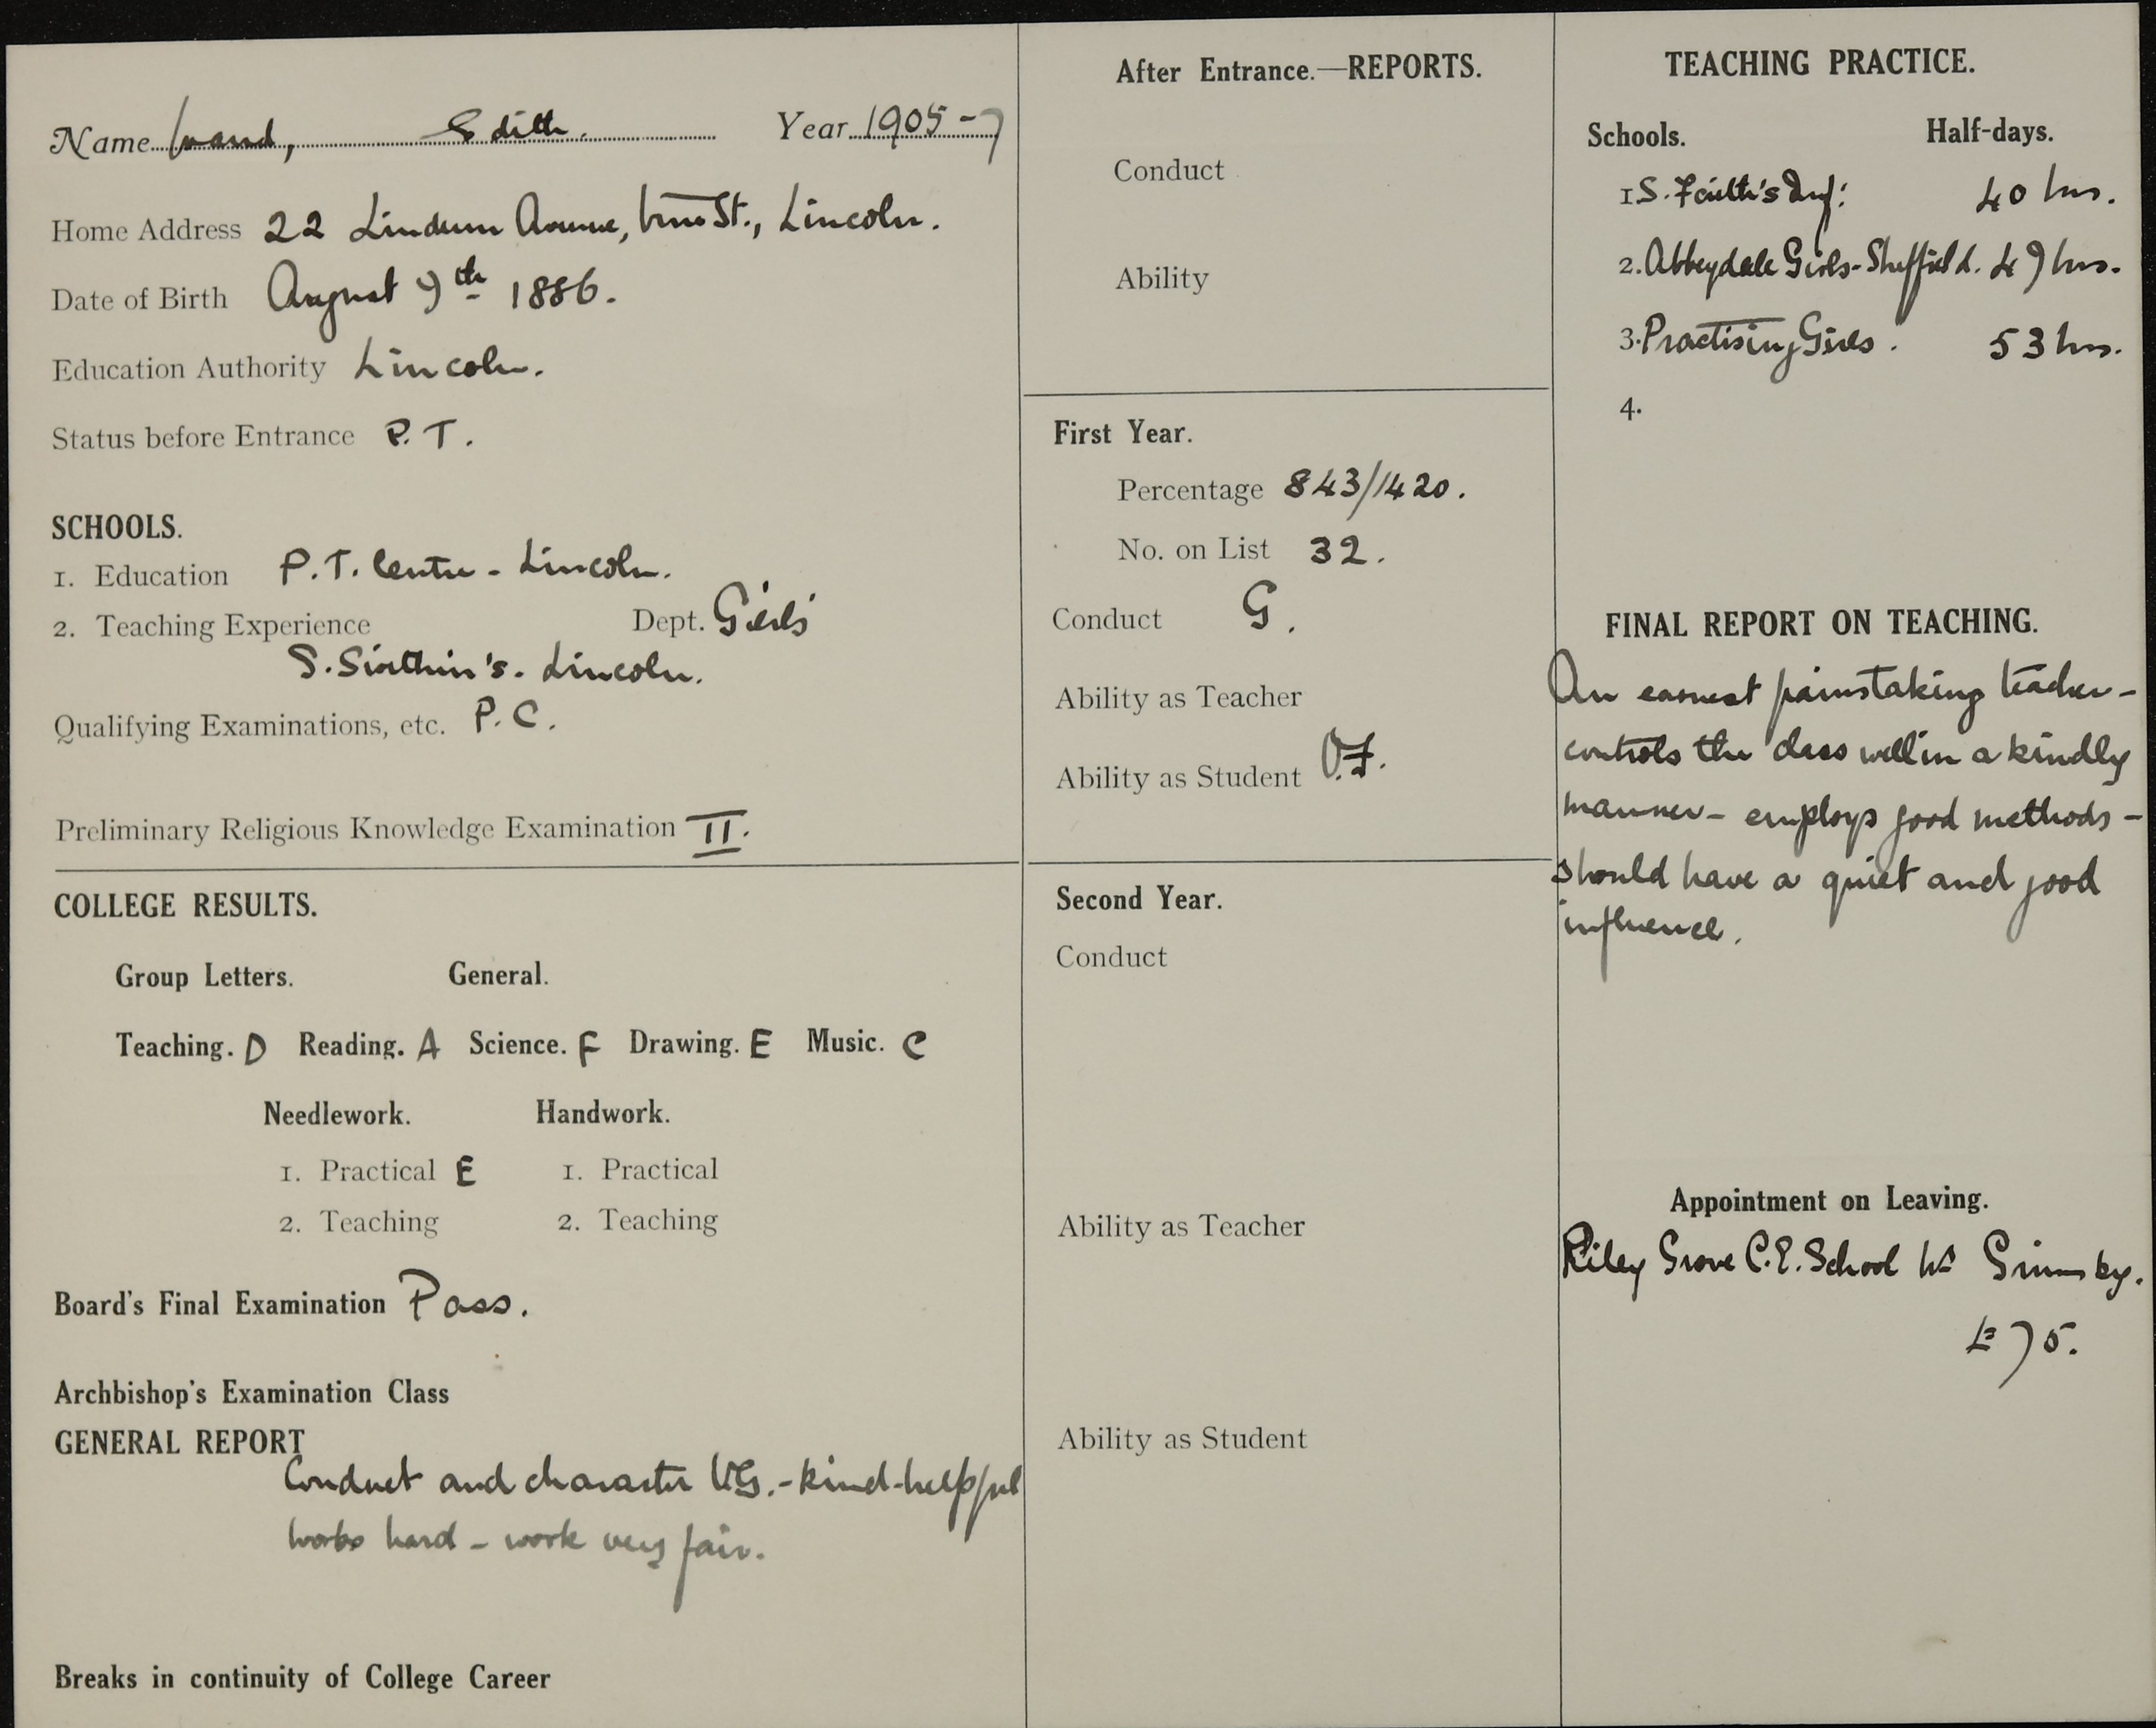 Name Ward, Edith. Year 1905-7
Home Address 22 Lindum Avenue, St., Lincoln.
Date of Birth August 9th 1886.
Education Authority Lincoln.
Status before Entrance P.T.
SCHOOLS.
1. Education P.T. Centre - Lincoln.
2. Teaching Experience Dept. Girls'
S. Swithin's. Lincoln.
Qualifying Examinations, etc. P.C.
Preliminary Religious Knowledge Examination II.
COLLEGE RESULTS.
Group Letters. General.
Teaching. D Reading. A Science. F Drawing. E Music. C
Needlework. Handwork.
1. Practical E 1. Practical
2. Teaching 2. Teaching
Board's Final Examination Pass.
Archbishop's Examination Class
GENERAL REPORT
Conduct and character V.G. - kind - helpful
works hard - work very fair.
Breaks in continuity of College Career
After Entrance.—REPORTS.
Conduct
Ability
First Year.
Percentage 843/1420.
No. on List 32.
Conduct G.
Ability as Teacher
Ability as Student V.F.
Second Year.
Conduct
Ability as Teacher
Ability as Student
TEACHING PRACTICE.
Schools. Half-days.
1 S. Faith's Inf: 40 hrs.
2. Abbeydale Girls - Sheffield. 47 hrs.
3. Practising Girls. 53 hrs.
4.
FINAL REPORT ON TEACHING.
An earnest painstaking teacher -
controls the class well in a kindly
manner - employs good methods -
should have a quiet and good
influence.
Appointment on Leaving.
Grove C.E. School Grimsby.
£75.